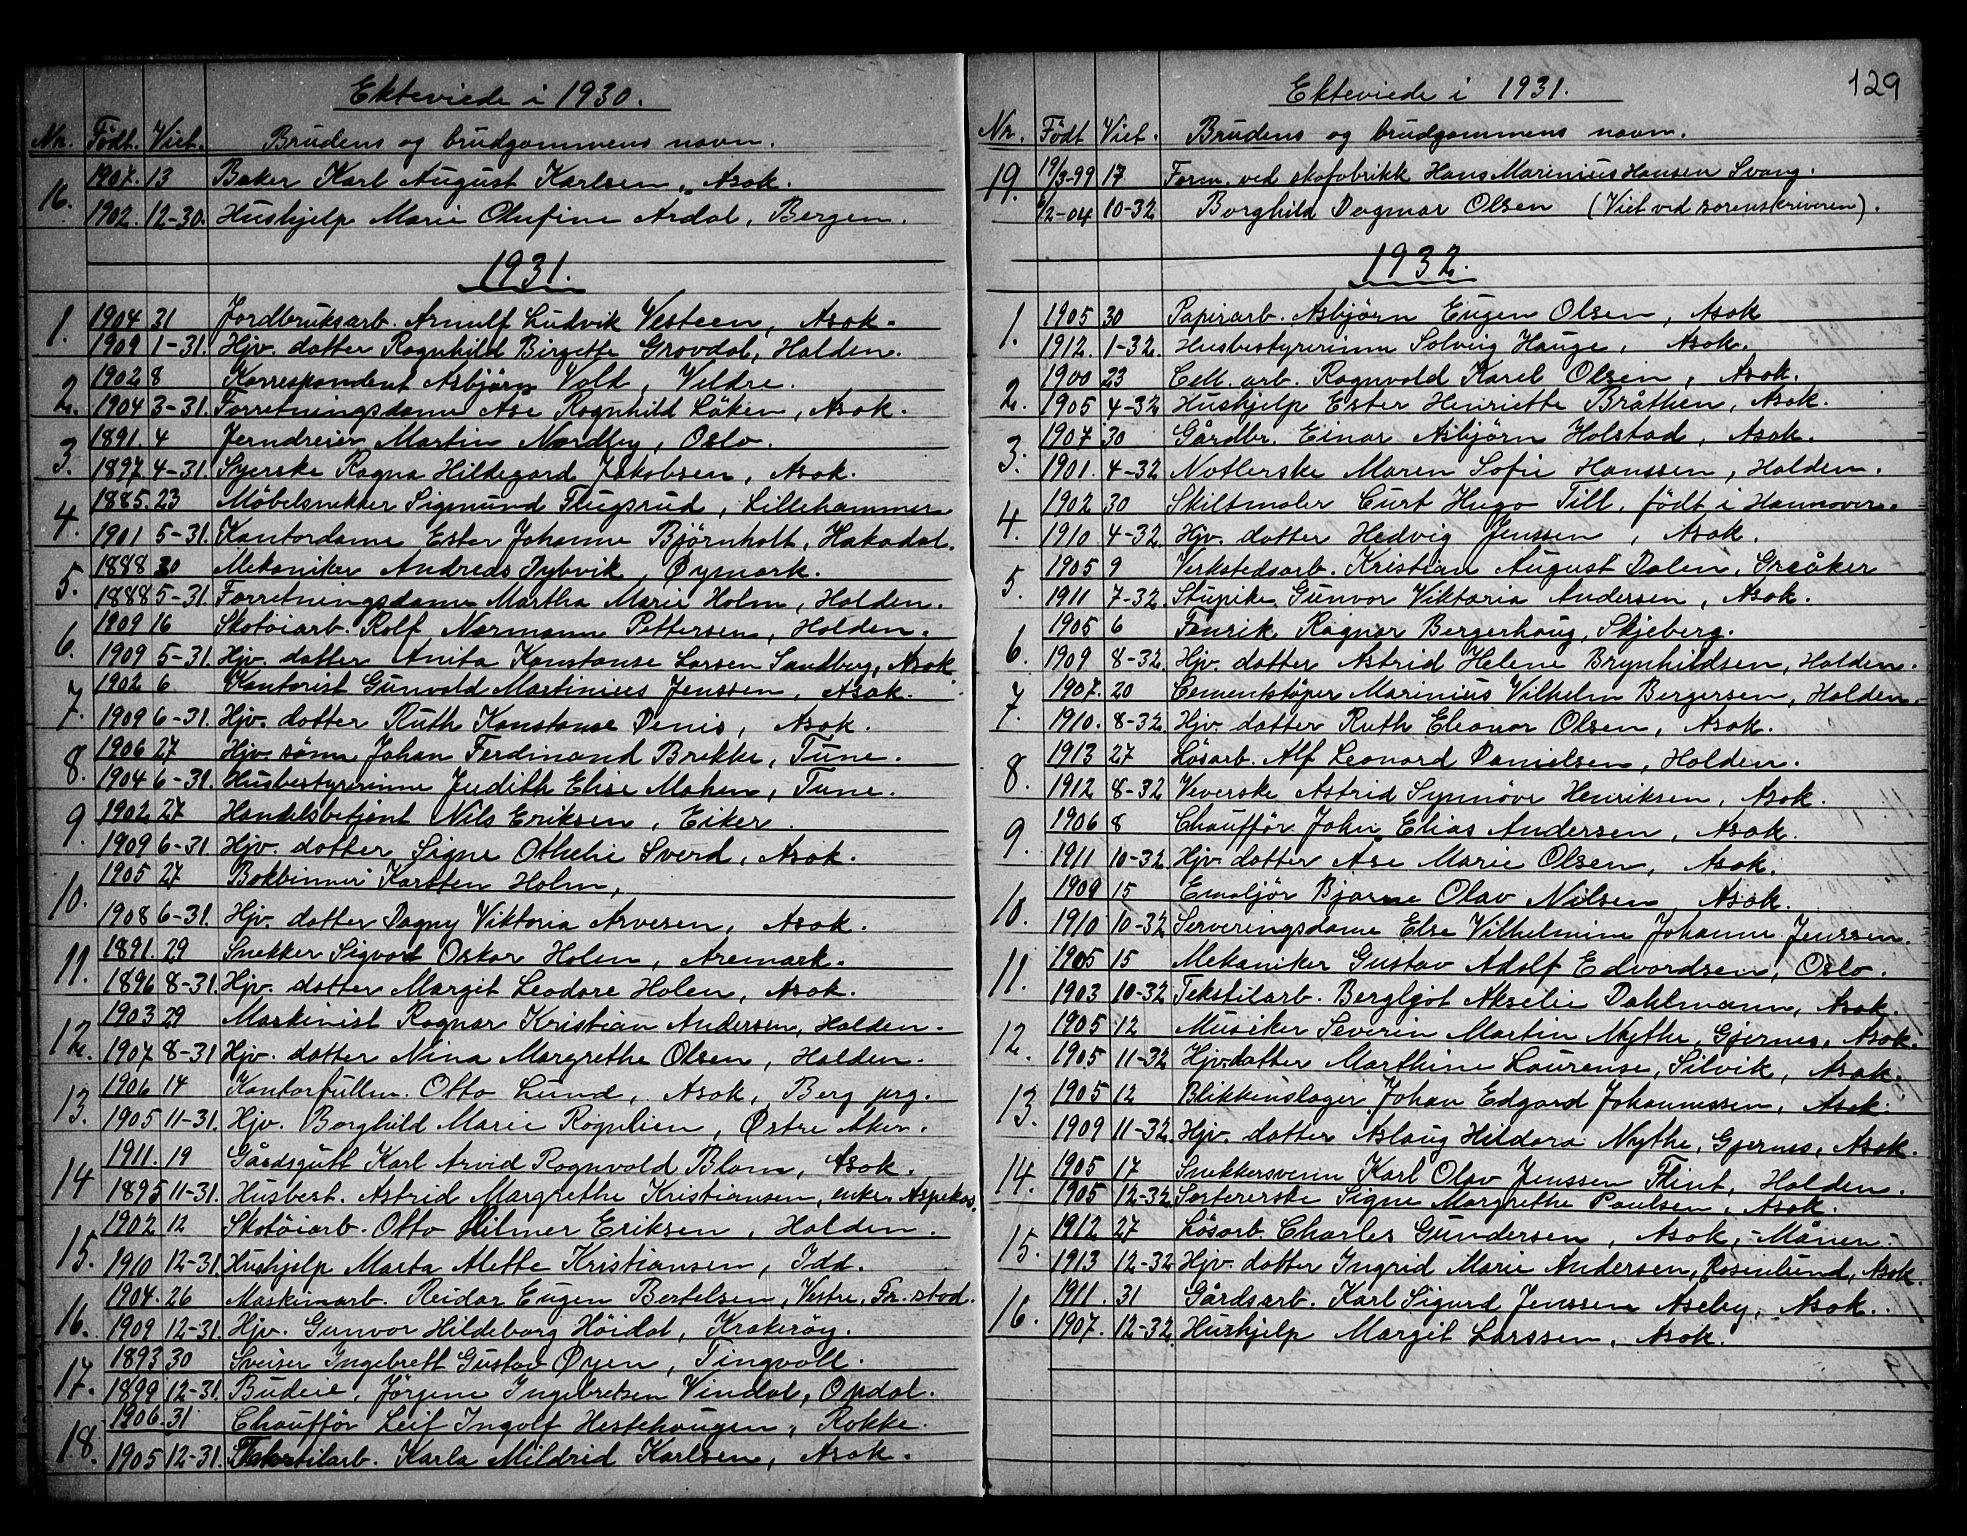 Ekteviede i 1930.
Nr. Født. Viet. Brudens og brudgommens navn.
16. 1907. 13 Baker Karl August Karlsen, Asak.
1902. 12-30. Hushjelp Marie Olufine Ardal, Bergen.
1931.
1. 1904 31 Jordbruksarb. Arnulf Ludvik Vesteen, Asak.
1909 1-31. Hjv. datter Ragnhild Birgitte Grovdal, Halden.
2. 1902 8 Korrespondent Asbjørn Vold, Veldre.
1904 3-31. Forretningsdame Åse Ragnhild Løken, Asak.
3. 1891. 4 Jerndreier Martin Nordby, Oslo.
1897. 4-31. Syerske Ragna Hildegard Jakobsen, Asak.
4. 1885. 23 Møbelsnekker Sigmund Flugsrud, Lillehammer
1901 5-31. Kontordame Ester Johanne Bjørnholt, Hakadal.
5. 1888 30 Mekaniker Andreas Dybvik, Øymark.
1888 5-31. Forretningsdame Martha Marie Holm, Halden.
6. 1909 16 Skotøiarb. Rolf Normann Pettersen, Halden.
1909 5-31. Hjv. datter Anita Konstanse Larsen Sandberg, Asak
7. 1902 6 Kontorist Gunvald Martinius Jenssen, Asak.
1909 6-31. Hjv. datter Ruth Konstanse Denis, Asak.
8. 1906 27 Hjv. sønn Johan Ferdinand Brekke, Tune.
1904 6-31. Husbestyrerinne Judith Elise Mohen, Tune.
9. 1902 27 Handelsbetjent Nils Eriksen, Eiker.
1909 6-31 Hjv. datter Signe Othelie Sverd, Asak.
10. 1905 27 Bokbinner Karsten Holm,
1908 6-31. Hjv. datter Dagny Viktoria Arvesen, Asak.
11. 1891. 29 Snekker Sigvart Oskar Holen, Aremark.
1896 8-31. Hjv. datter Margit Leodore Holen, Asak.
12. 1903 29 Maskinist Ragnar Kristian Andersen, Halden.
1907 8-31 Hjv. datter Nina Margrethe Olsen, Halden.
13. 1906 14 Kontorfullm. Otto Lund, Asak, Berg prg.
1905 11-31. Hjv. Borghild Marie Rognlien, Østre Aker.
14 1911. 19 Gårdsgutt Karl Arvid Ragnvald Blom, Asak.
1895 11-31. Husbest. Astrid Margrethe Kristiansen, enke, Aspekas.
15. 1902 12 Skotøiarb. Otto Hilmer Eriksen, Halden.
1910 12-31. Hushjelp Marta Alette Kristiansen, Idd.
16. 1904. 26 Maskinarb. Reidar Eugen Bertelsen, Vestre, Fr.stad.
1909 12-31. Hjv. Gunvor Hildeborg Høidal, Krakerøy.
17. 1893 30 Sveiser Ingebrett Gustav Øyen, Tingvoll.
1899 12-31. Budeie, Jørgine Ingebretsen Vindal, Opdal.
18. 1906. 31 Chauffør Leif Ingolf Hestehaugen, Rokke.
1905 12-31. Tekstilarb. Karla Mildrid Karlsen, Asak.
129
Ekteviede i 1931.
Nr. Født Viet. Brudens og brudgommens navn.
19. 19/3-99 17 Form. ved skofabrikk Hans Marinius Hansen Svang.
6/2-04 10-32 Borghild Dagmar Olsen (Viet ved sorenskriveren).
1932.
1. 1905 30 Papirarb. Asbjørn Eugen Olsen, Asak
1912. 1-32. Husbestyrerinne Solveig Hauge, Asak.
2. 1900 23 Cell. arb. Ragnvald Karel Olsen, Asak.
1905 4-32 Hushjelp Ester Henriette Bråthen, Asak.
3. 1907 30 Gårdbr. Einar Asbjørn Holstad, Asak.
1901. 4-32 Notlerske Maren Sofie Hanssen, Halden.
4. 1902 30 Skiltmaler Curt Hugo Till, født i Hannover.
1910 4-32 Hjv. datter Hedvig Jenssen, Asak.
5. 1905 9 Verkstedsarb. Kristian August Dalen, Greåker
1911 7-32. Stupike Gunvor Viktoria Andersen, Asak.
6. 1905 6 Fenrik Ragnar Bergerhaug, Skjeberg.
1909 8-32. Hjv. datter Astrid Helene Brynhildsen, Halden.
7. 1907. 20 Cementstøper Marinius Vilhelm Bergersen, Halden.
1910. 8-32. Hjv. datter Ruth Eleonor Olsen, Asak.
8. 1913 27 Løsarb. Alf Leonard Danielsen, Halden.
1912 8-32 Veverske Astrid Synnøve Henriksen, Asak.
9. 1906 8 Chauffør John Elias Andersen, Asak.
1911 10-32. Hjv datter Åse Marie Olsen, Asak.
10. 1909 15 Emaljør Bjarne Olav Nilsen, Asak.
1910 10-32 Serveringsdame Else Vilhelmine Johanne Jenssen.
11. 1905 15 Mekaniker Gustav Adolf Edvardsen, Oslo.
1903 10-32 Tekstilarb. Bergljot Akselie Dahlmann, Asak.
12. 1905 12 Musiker Severin Martin Nythe, Gjernes, Asak.
1905 11-32. Hjv. datter Marthine Laurense, Silvik, Asak.
13. 1905 12 Blikkenslager Johan Edgard Johannessen, Asak.
1909 11-32. Hjv. datter Aslaug Hildora Nythe, Gjernes, Asak.
14. 1905 17 Snekkersvenn Karl Olav Jenssen Flint, Halden.
1905 12-32. Sortererske Signe Margrethe Paulsen, Asak.
15. 1912 27 Løsarb. Charles Gundersen, Asak, - Månen -
1913 12-32 Hjv. datter Ingrid Marie Andersen, Rosenlund, Asak.
16. 1911. 31 Gårdsarb. Karl Sigurd Jenssen Aseby, Asak.
1907. 12-32. Hushjelp Margit Larssen, Asak.